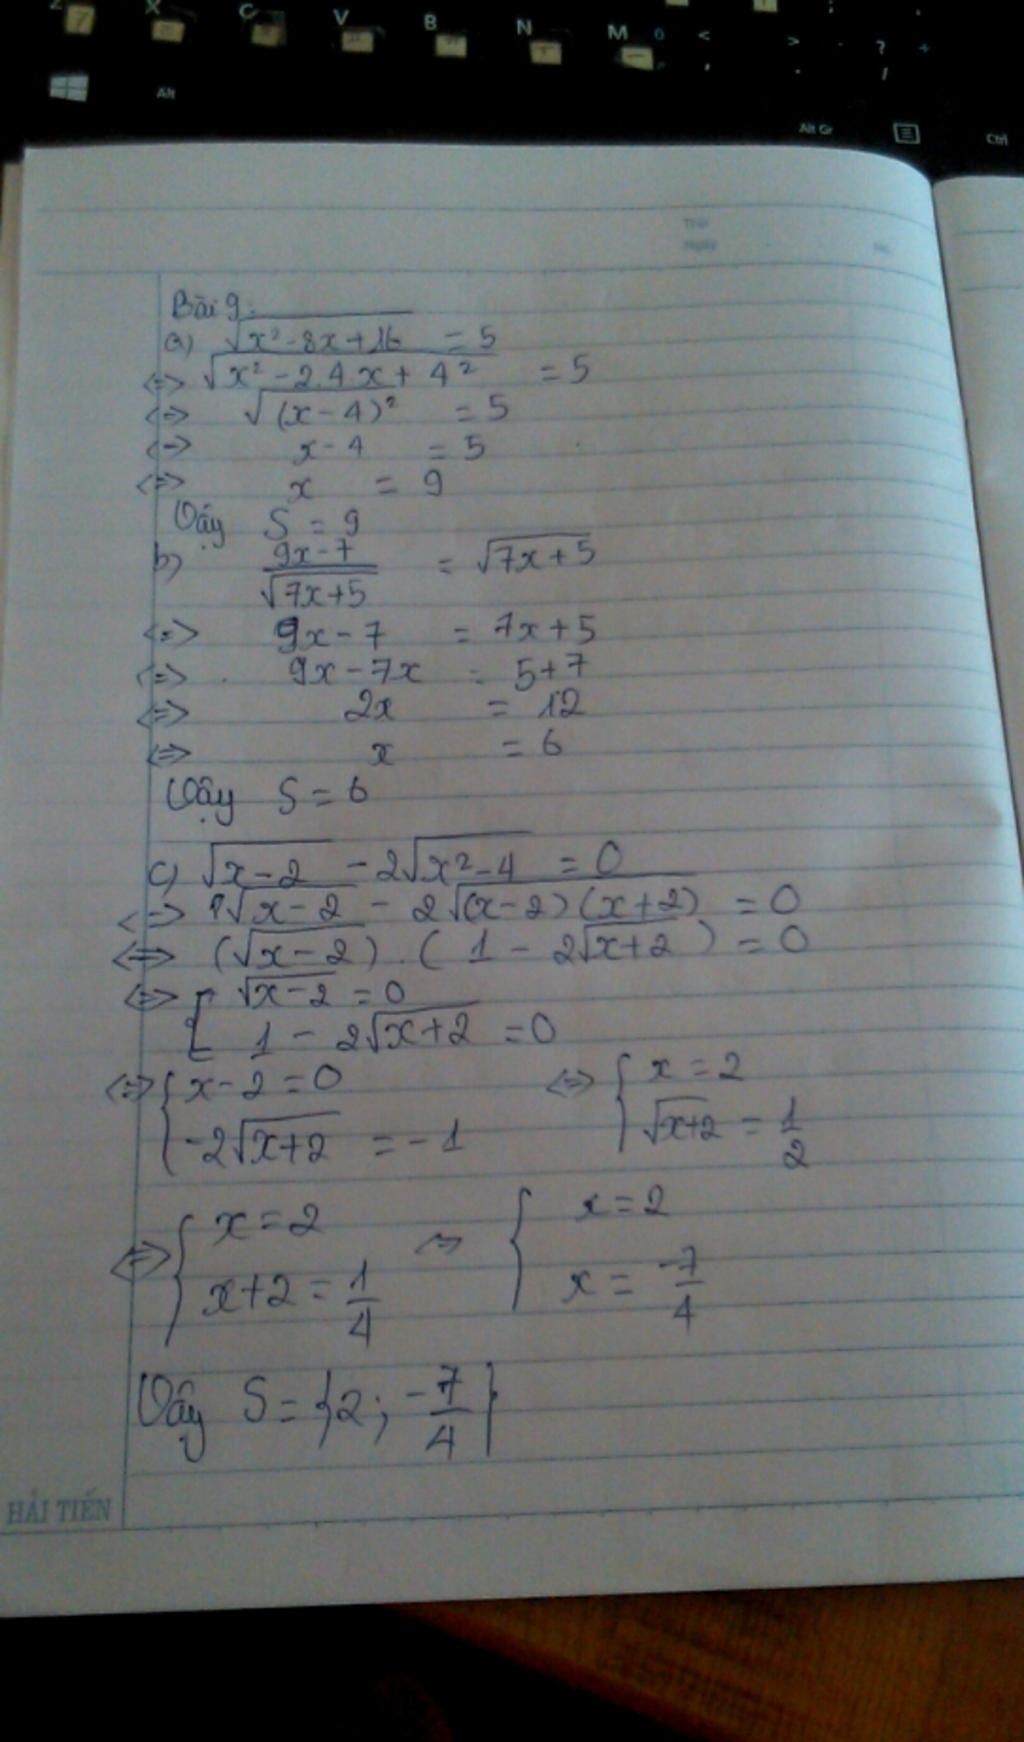 Z X C V B N M < > ? +
Alt
Alt Gr Ctrl
Thứ
Ngày
No.
Bài 9:
a) √x² - 8x + 16 = 5
<=> √x² - 2.4x + 4² = 5
<=> √(x - 4)² = 5
<=> x - 4 = 5
<=> x = 9
Vậy S = 9
b) 9x - 7 / √7x + 5 = √7x + 5
<=> 9x - 7 = 7x + 5
<=> 9x - 7x = 5 + 7
<=> 2x = 12
<=> x = 6
Vậy S = 6
c) √x - 2 - 2√x² - 4 = 0
<=> √x - 2 - 2√(x - 2)(x + 2) = 0
<=> (√x - 2) . (1 - 2√x + 2) = 0
<=> [ √x - 2 = 0
1 - 2√x + 2 = 0
<=> { x - 2 = 0 <=> { x = 2
-2√x + 2 = -1 √x + 2 = 1/2
<=> { x = 2 <=> { x = 2
x + 2 = 1/4 x = -7/4
Vậy S = {2; -7/4}
HẢI TIẾN